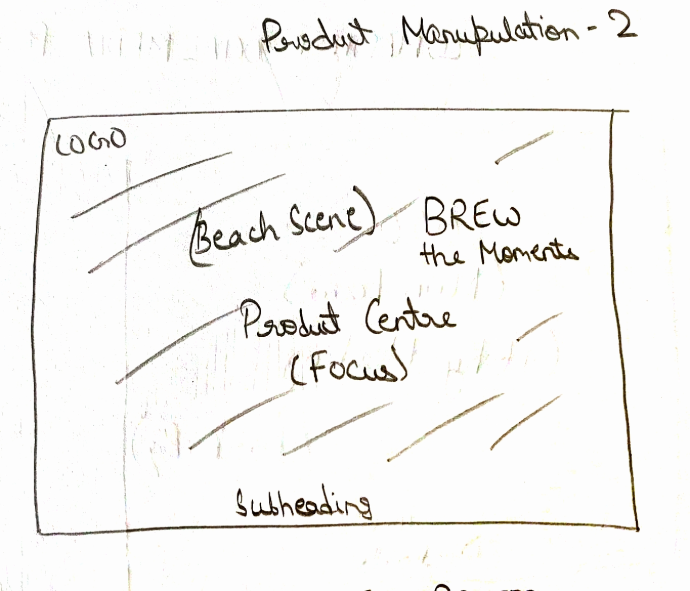 Product Manupulation - 2
LOGO
(Beach Scene)
BREW
the Moments
Product Centre
(Focus)
Subheading